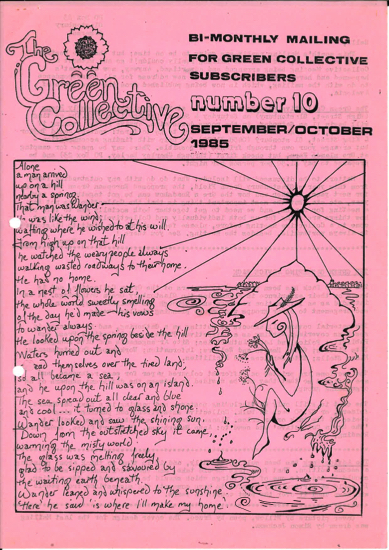 The
Green
Collective
BI-MONTHLY MAILING
FOR GREEN COLLECTIVE
SUBSCRIBERS
number 10
SEPTEMBER/OCTOBER
1985
Alone
a man arrived
up on a hill
nearby a spring.
That man was Wander.
was like the wind;
wafting where he wished to at his will.
From high up on that hill
he watched the weary people always
walking wasted roadways to their home.
He has no home.
In a nest of flowers he sat,
the whole world sweetly smelling
of the day he'd made his vows
to wander always.
He looked upon the spring beside the hill
Waters hurried out and
themselves over the tired land;
so all became a sea;
and he upon the hill was on an island.
The sea spread out all clear and blue
and cool... it turned to glass and shone.
Wander looked and saw the shining sun.
Down from the outstretched sky it came
warming the misty world
The glass was melting freely,
glad to be sipped and savoured by
the waiting earth beneath.
Wander leaned and whispered to the sunshine
'Here' he said 'is where I'll make my home.'